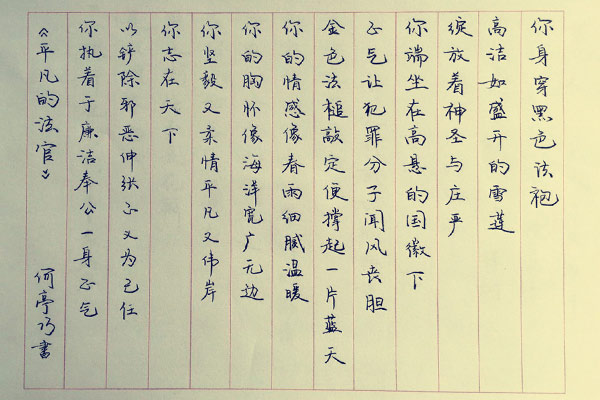 你身穿黑色法袍
高洁如盛开的雪莲
绽放着神圣与庄严
你端坐在高悬的国徽下
正气让犯罪分子闻风丧胆
金色法槌敲定便撑起一片蓝天
你的情感像春雨细腻温暖
你的胸怀像海洋宽广无边
你坚毅又柔情平凡又伟岸
你志在天下
以铲除邪恶伸张正义为己任
你执着于廉洁奉公一身正气
《平凡的法官》 何亭书